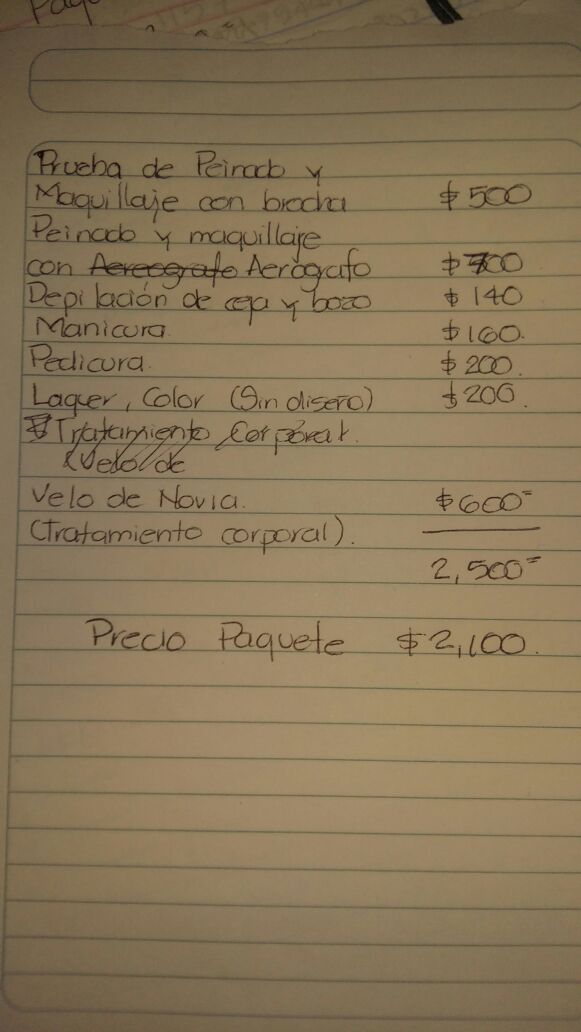 Paq
Prueba de Peinado y
Maquillaje con brocha $500
Peinado y maquillaje
con Aereografo Aerógrafo $700
Depilación de ceja y bozo $140
Manicura. $160.
Pedicura. $200.
Laquer, Color (Sin diseño) $200.
Tratamiento Corporal.
(Velo de
Velo de Novia. $600=
(Tratamiento corporal).
2,500=
Precio Paquete $2,100.